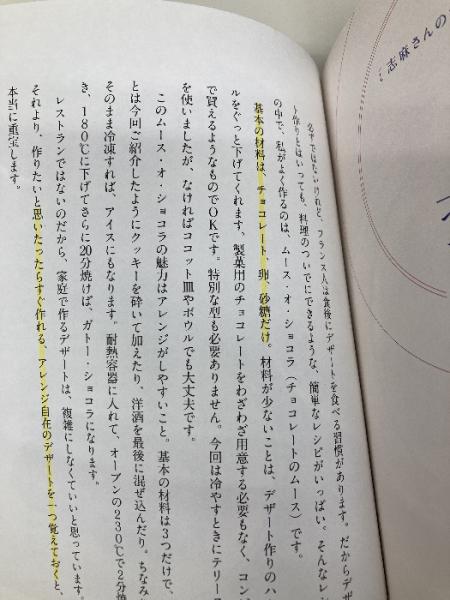 志麻さんの
必ずではないけれど、フランス人は食後にデザートを食べる習慣があります。だからデザ
ト作りとはいっても、料理のついでにできるような、簡単なレシピがいっぱい。そんなレシ
の中で、私がよく作るのは、ムース・オ・ショコラ（チョコレートのムース）です。
基本の材料は、チョコレート、卵、砂糖だけ。材料が少ないことは、デザート作りのハ
ルをぐっと下げてくれます。製菓用のチョコレートをわざわざ用意する必要もなく、コン
で買えるようなものでOKです。特別な型も必要ありません。今回は冷やすときにテリー
を使いましたが、なければココット皿やボウルでも大丈夫です。
このムース・オ・ショコラの魅力はアレンジがしやすいこと。基本の材料は3つだけで、
とは今回ご紹介したようにクッキーを砕いて加えたり、洋酒を最後に混ぜ込んだり。ちなみ
そのまま冷凍すれば、アイスにもなります。耐熱容器に入れて、オーブンの230℃で2分焼
き、180℃に下げてさらに20分焼けば、ガトー・ショコラになります。
レストランではないのだから、家庭で作るデザートは、複雑にしなくていいと思っています。
それより、作りたいと思いたったらすぐ作れる、アレンジ自在のデザートを一つ覚えておくと、
本当に重宝します。